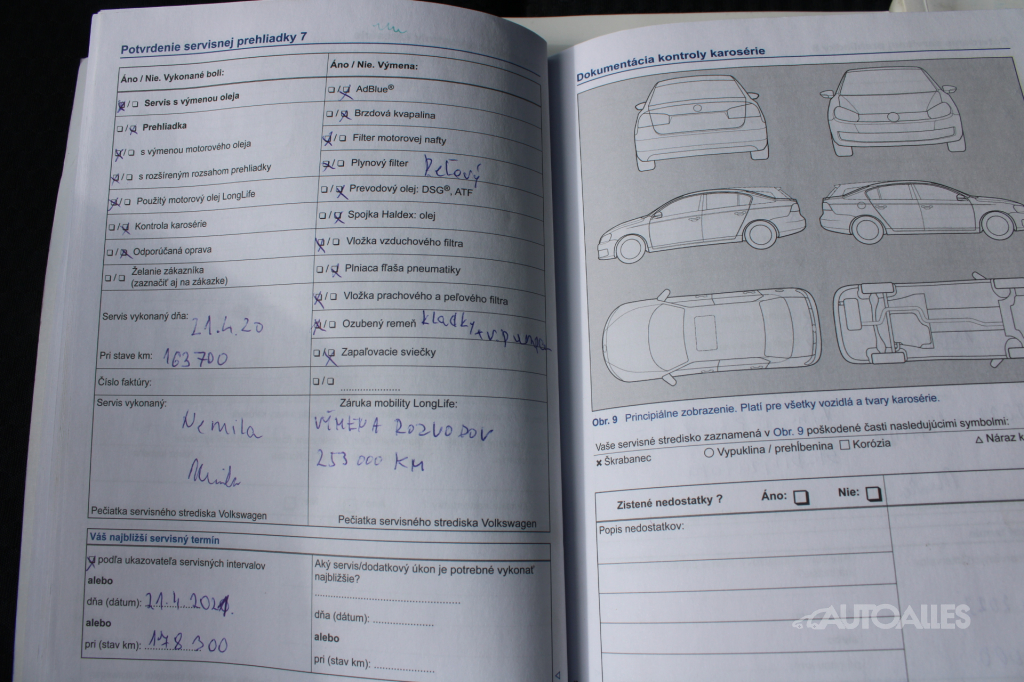 Potvrdenie servisnej prehliadky 7
Áno / Nie. Vykonané boli:
☒/☐ Servis s výmenou oleja
☐/☒ Prehliadka
☒/☐ s výmenou motorového oleja
☒/☐ s rozšíreným rozsahom prehliadky
☒/☐ Použitý motorový olej LongLife
☐/☒ Kontrola karosérie
☐/☒ Odporúčaná oprava
☐/☐ Želanie zákazníka
(zaznačiť aj na zákazke)
Servis vykonaný dňa: 21.4.20
Pri stave km: 163700
Číslo faktúry:
Servis vykonaný:
Nemila
Pečiatka servisného strediska Volkswagen
Áno / Nie. Výmena:
☐/☒ AdBlue®
☐/☒ Brzdová kvapalina
☒/☐ Filter motorovej nafty
☒/☐ Plynový filter Peľový
☐/☒ Prevodový olej: DSG®, ATF
☐/☒ Spojka Haldex: olej
☒/☐ Vložka vzduchového filtra
☐/☒ Plniaca fľaša pneumatiky
☒/☐ Vložka prachového a peľového filtra
☒/☐ Ozubený remeň kladky + v.pumpa
☐/☒ Zapaľovacie sviečky
☐/☐ ....................
Záruka mobility LongLife:
VÝMENA ROZVODOV
253 000 KM
Pečiatka servisného strediska Volkswagen
Váš najbližší servisný termín
☒ podľa ukazovateľa servisných intervalov
alebo
dňa (dátum): 21.4.2021
alebo
pri (stav km): 178 300
Aký servis/dodatkový úkon je potrebné vykonať
najbližšie?
dňa (dátum): ....................
alebo
pri (stav km): ....................
Dokumentácia kontroly karosérie
Obr. 9 Principiálne zobrazenie. Platí pre všetky vozidlá a tvary karosérie.
Vaše servisné stredisko zaznamená v Obr. 9 poškodené časti nasledujúcimi symbolmi:
× Škrabanec ○ Vypuklina / prehĺbenina ☐ Korózia △ Náraz k
Zistené nedostatky ? Áno: ☐ Nie: ☐
Popis nedostatkov:
AUTOALLES